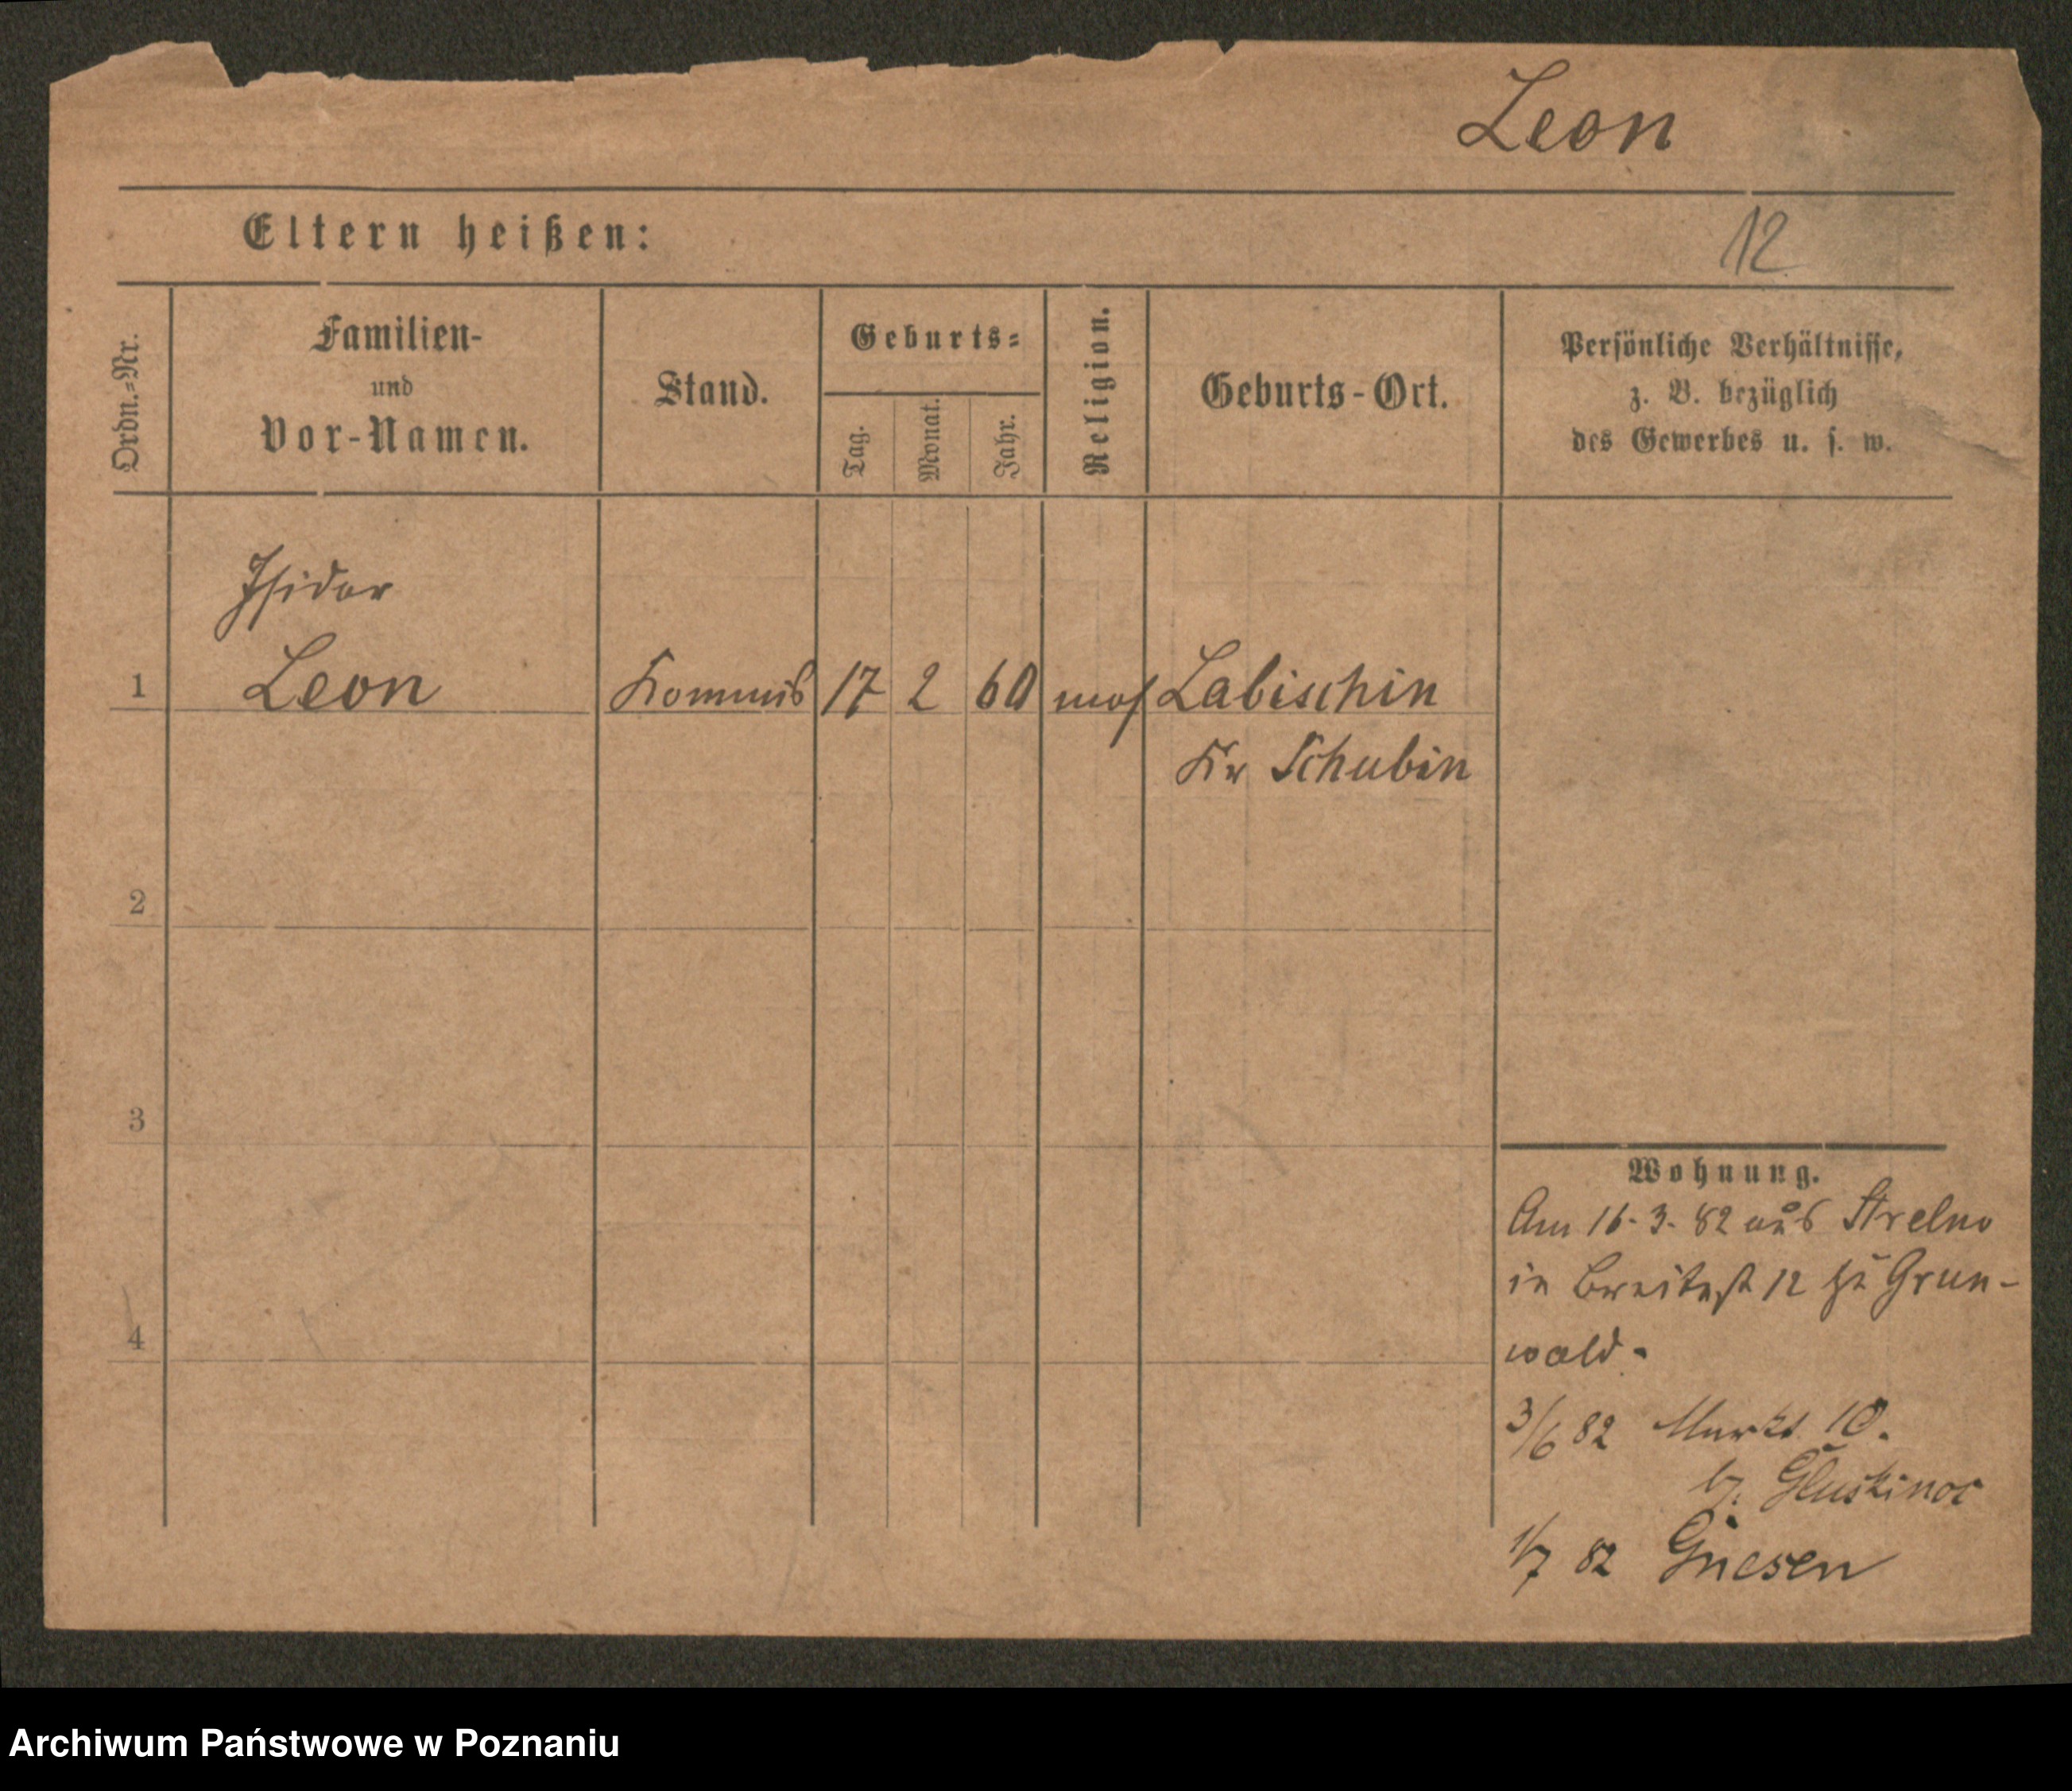 Leon
Eltern heißen:
12
Ordn.-Nr.
Familien-
und
Vor-Namen.
Stand.
Geburts-
Tag.
Monat.
Jahr.
Religion.
Geburts-Ort.
Persönliche Verhältnisse,
z. B. bezüglich
des Gewerbes u. s. w.
Isidor
1 Leon Kommis 17 2 60 mos Labischin
Kr Schubin
2
3
4
Wohnung.
Am 16. 3. 82 aus Strelno
in Breitestr 12 zu Grun-
wald.
3/6 82 Markt 10.
b.
1/7 82 Gnesen
Archiwum Państwowe w Poznaniu